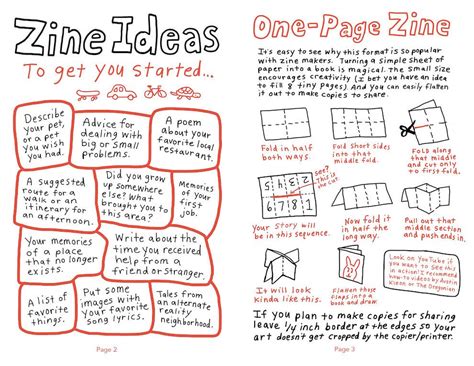 Zine Ideas
To get you started...
Describe
your pet,
or a pet
you wish
you had.
Advice for
dealing with
big or small
problems.
A poem
about your
favorite local
restaurant.
A suggested
route for a
walk or an
itinerary for
an afternoon.
Did you grow
up somewhere
else? What
brought you to
this area?
Memories
of your
first job.
Your memories
of a place
that no longer
exists.
Write about the
time you received
help from a
friend or stranger.
A list of
favorite
things.
Put some
images with
your favorite
song lyrics.
Tales from
an alternate
reality
neighborhood.
Page 2
One-Page Zine
It's easy to see why this format is so popular
with zine makers. Turning a simple sheet of
paper into a book is magical. The small size
encourages creativity (I bet you have an idea
to fill 8 tiny pages). And you can easily flatten
it out to make copies to share.
Fold in half
both ways.
Fold short sides
into that
middle fold.
Fold along
that middle
and cut only
to first fold.
See?
This is
the cut.
5 4 3 2
6 7 8 1
Your story will
be in this sequence.
Now fold it
in half the
long way.
Pull out that
middle section
and push ends in.
It will look
kinda like this.
Flatten those
flaps into a
book and draw
Look on YouTube if
you want to see this
in action! I recommend
how-to videos by Austin
Kleon or The Oregonian
If you plan to make copies for sharing
leave 1/4 inch border at the edges so your
art doesn't get cropped by the copier/printer.
Page 3